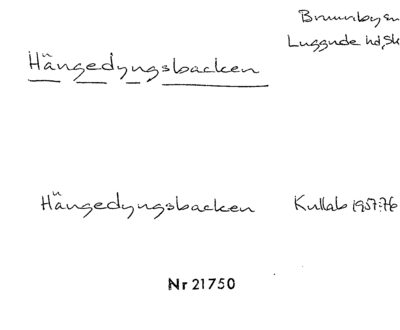 Brunnby sn
Luggude hd, Sk
Hängedyngsbacken
Hängedyngsbacken Kullab 1957:76
Nr 21750